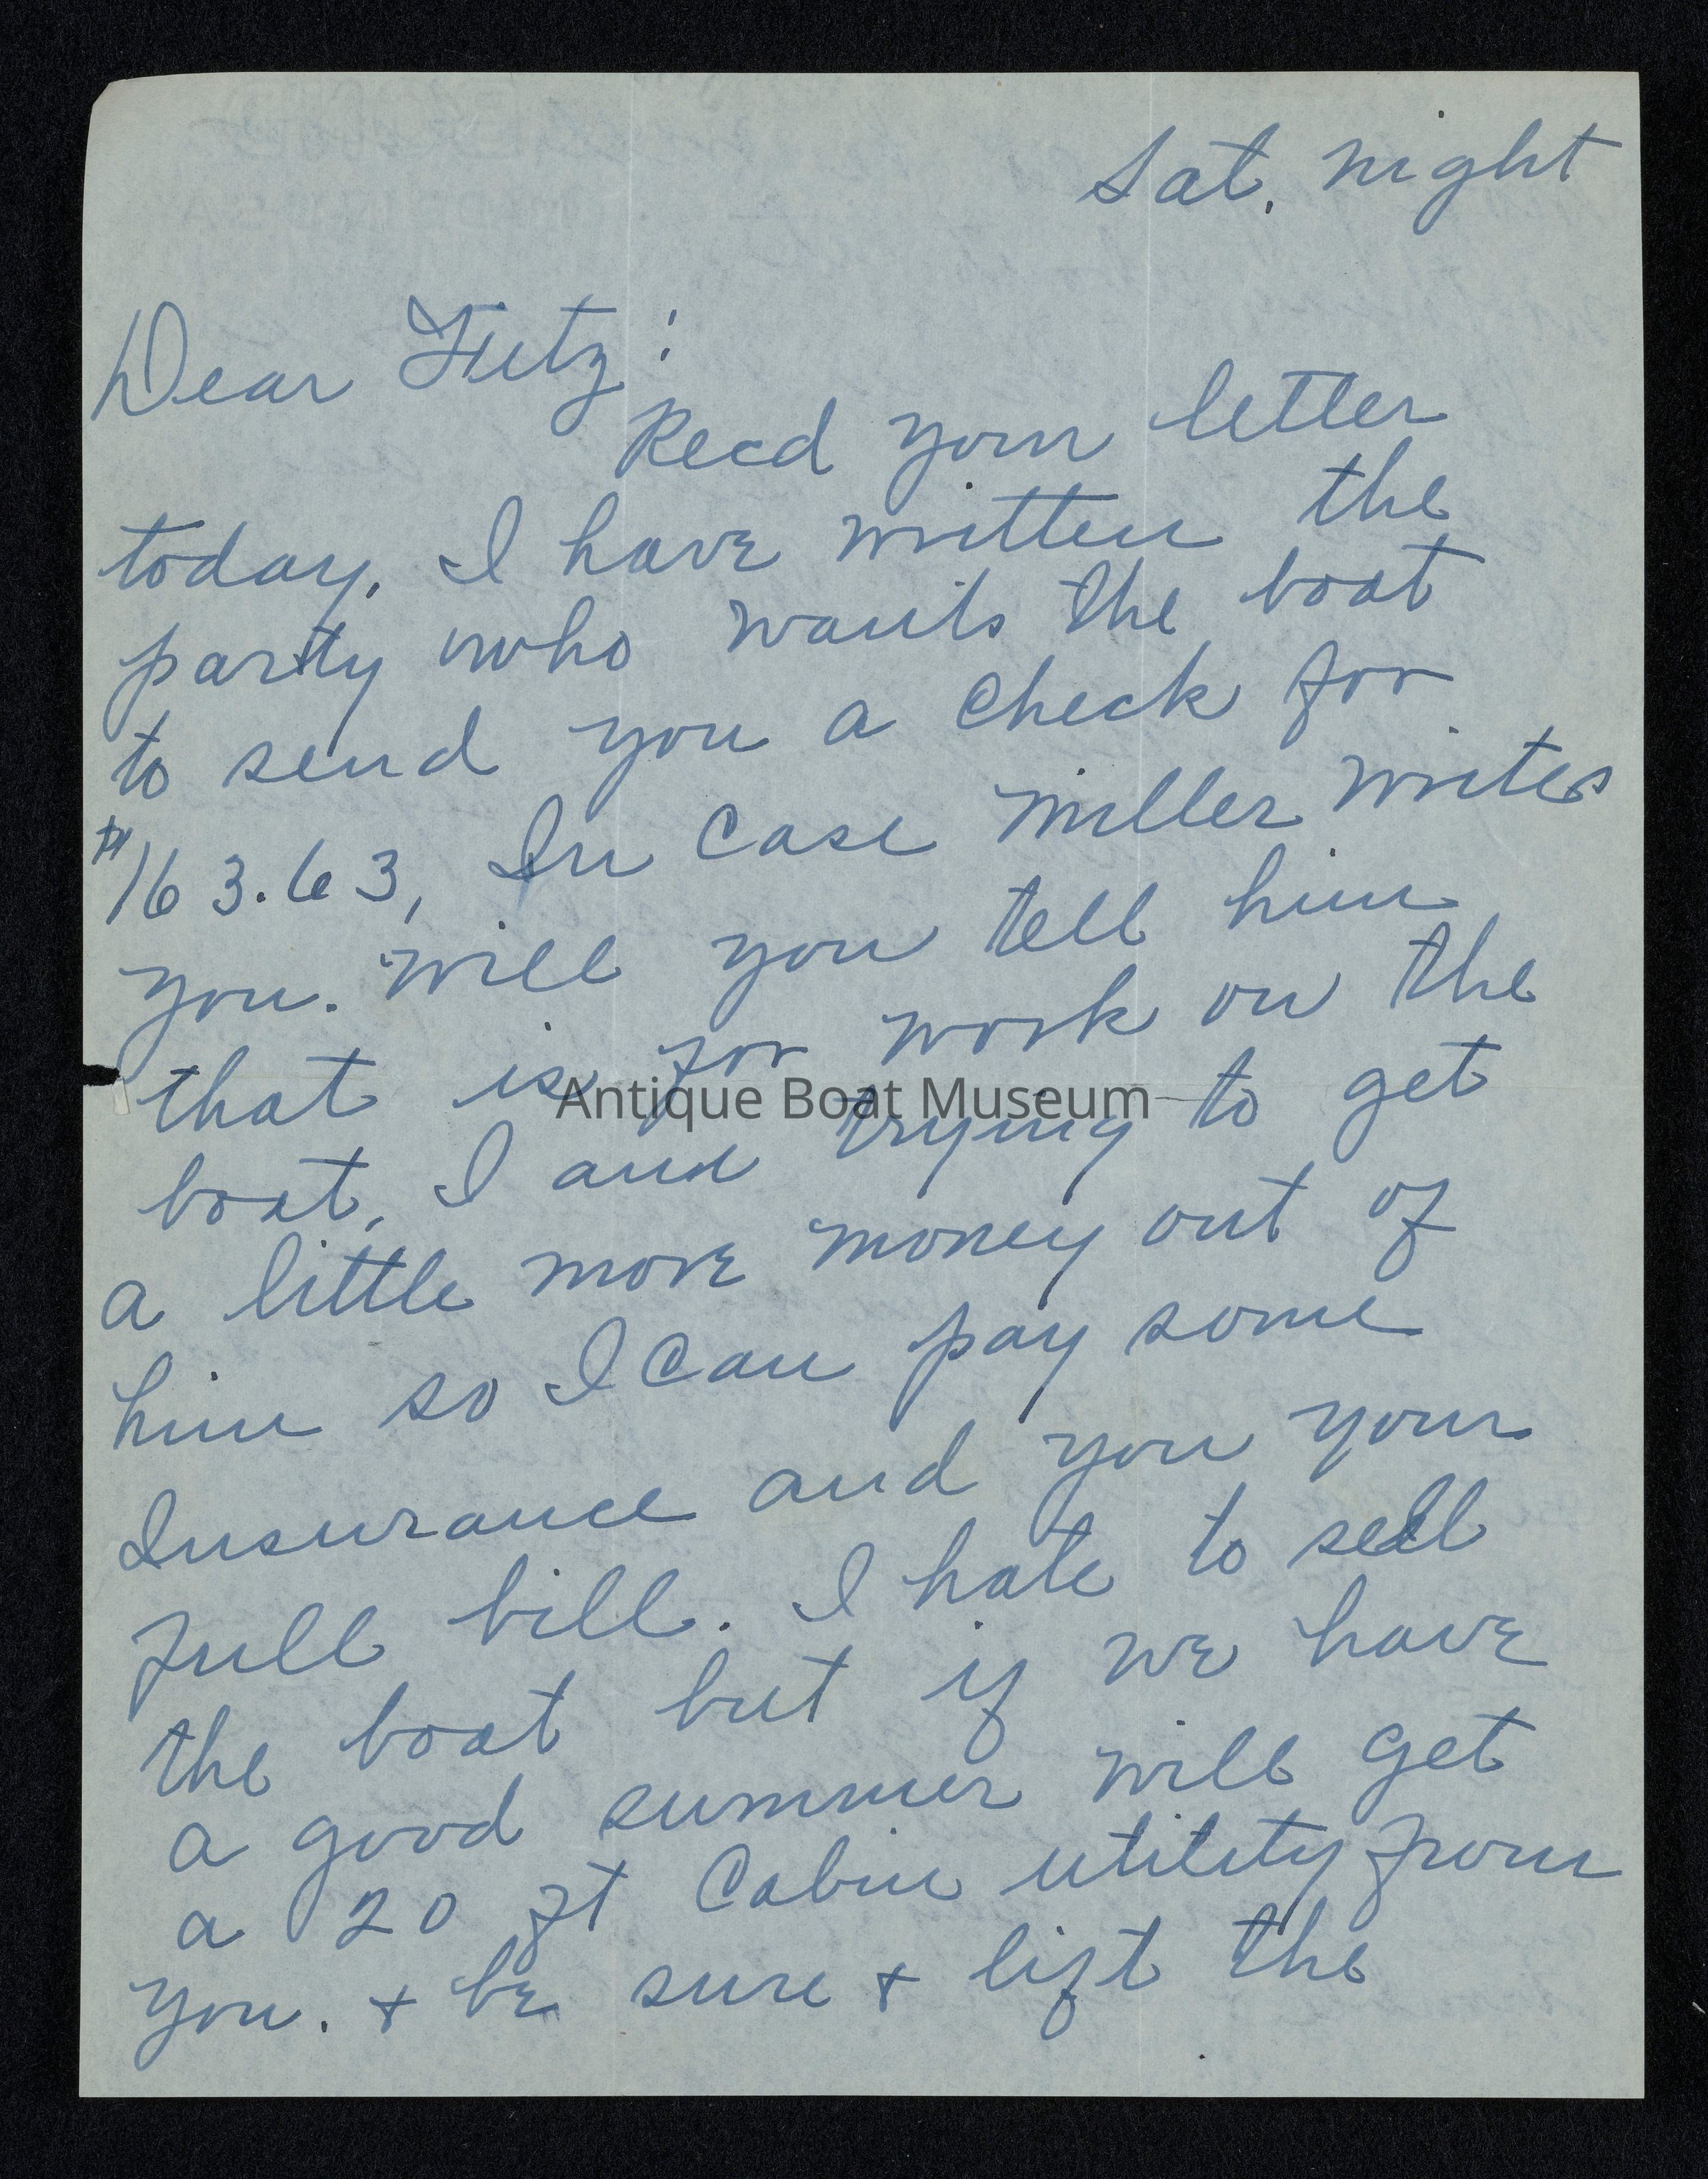 Sat. night
Dear Fitz:
Recd your letter
today. I have written the
party who wants the boat
to send you a check for
$163.63, In Case Miller writes
you. Will you tell him
that is for work on the
Antique Boat Museum
boat. I am trying to get
a little more money out of
him so I Can pay some
Insurance and you your
full bill. I hate to sell
the boat but if we have
a good summer will get
a 20 ft Cabin utility from
you. + be sure + lift the